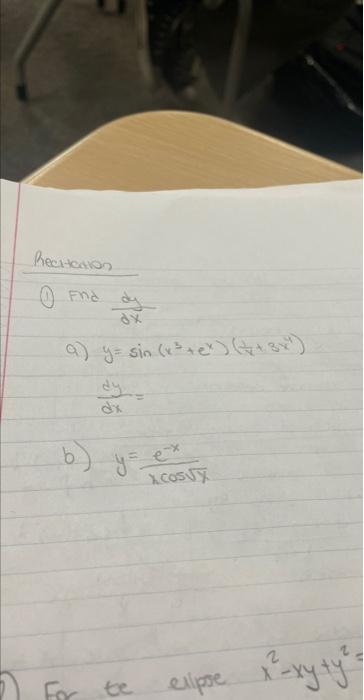 Recitation
① Find dy/dx
a) y = sin(x³+eˣ)(1/x + 3x⁴)
dy/dx =
b) y = e⁻ˣ/xcos√x
For te ellipse x²-xy+y²=